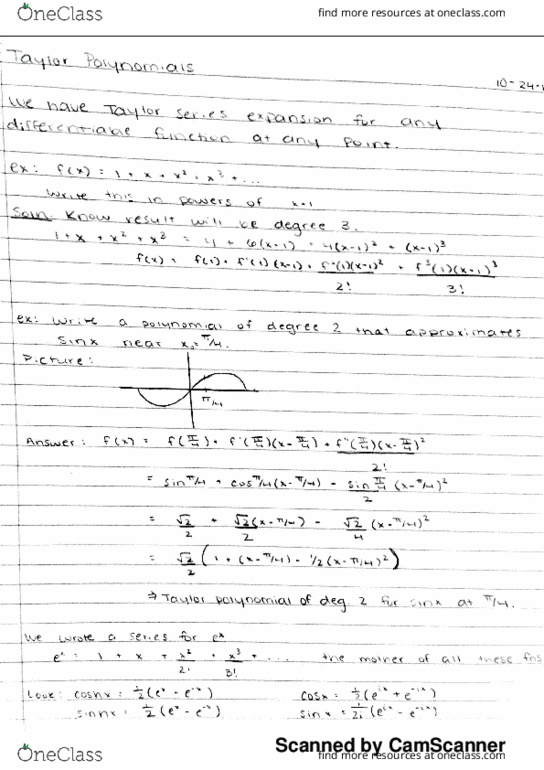 OneClass
find more resources at oneclass.com
Taylor Polynomials
10-24-1
We have Taylor series expansion for any
differentiable function at any point.
ex: f(x) = 1 + x + x² + x³ + ...
Write this in powers of x-1
Soln. Know result will be degree 3.
1 + x + x² + x³ = 4 + 6(x-1) + 4(x-1)² + (x-1)³
f(x) = f(1) + f'(1)(x-1) + f''(1)(x-1)²/2! + f³(1)(x-1)³/3!
ex: Write a polynomial of degree 2 that approximates
sinx near x₀ = π/4.
Picture:
π/4
Answer: f(x) = f(π/4) + f'(π/4)(x-π/4) + f''(π/4)(x-π/4)²/2!
= sinπ/4 + cosπ/4(x-π/4) - sinπ/4/2 (x-π/4)²
= √2/2 + √2/2(x-π/4) - √2/4 (x-π/4)²
= √2/2 (1 + (x-π/4) - 1/2(x-π/4)²)
⇒ Taylor polynomial of deg 2 for sinx at π/4.
We wrote a series for eˣ
eˣ = 1 + x + x²/2! + x³/3! + ... the mother of all these fns
Look: coshx = 1/2(eˣ - e⁻ˣ) cosx = 1/2(eⁱˣ + e⁻ⁱˣ)
sinhx = 1/2(eˣ - e⁻ˣ) sinx = 1/2i(eⁱˣ - e⁻ⁱˣ)
Scanned by CamScanner
OneClass
find more resources at oneclass.com